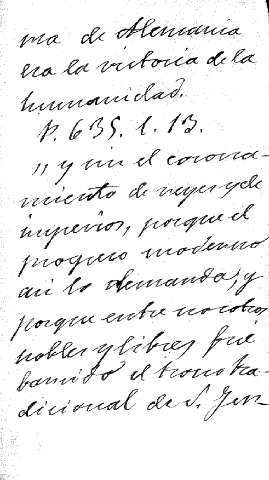 ma de Alemania
era la victoria de la
humanidad.
P. 635. l. 13.
" y sin el corona-
miento de reyes y de
imperios, porque el
progreso moderno
asi lo demanda, y
porque entre nosotros
nobles y libres fué
barrido el trono tra-
dicional de S. Fer-